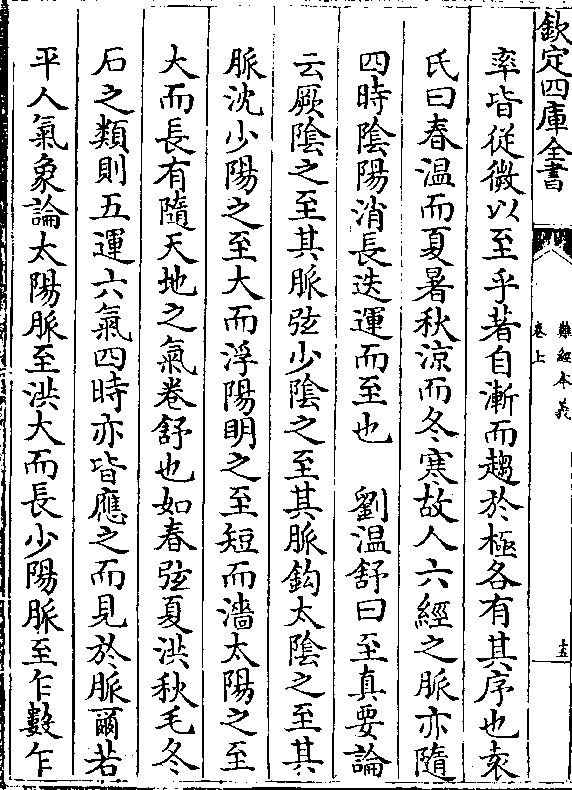 欽定四庫全書
難經本義
卷上
十五
率皆從微以至乎著自漸而趨於極各有其序也袁
氏曰春温而夏暑秋涼而冬寒故人六經之脈亦隨
四時陰陽消長迭運而至也　劉温舒曰至真要論
云厥陰之至其脈弦少陰之至其脈鈎太陰之至其
脈沈少陽之至大而浮陽明之至短而濇太陽之至
大而長有隨天地之氣卷舒也如春弦夏洪秋毛冬
石之類則五運六氣四時亦皆應之而見於脈爾若
平人氣象論太陽脈至洪大而長少陽脈至乍數乍